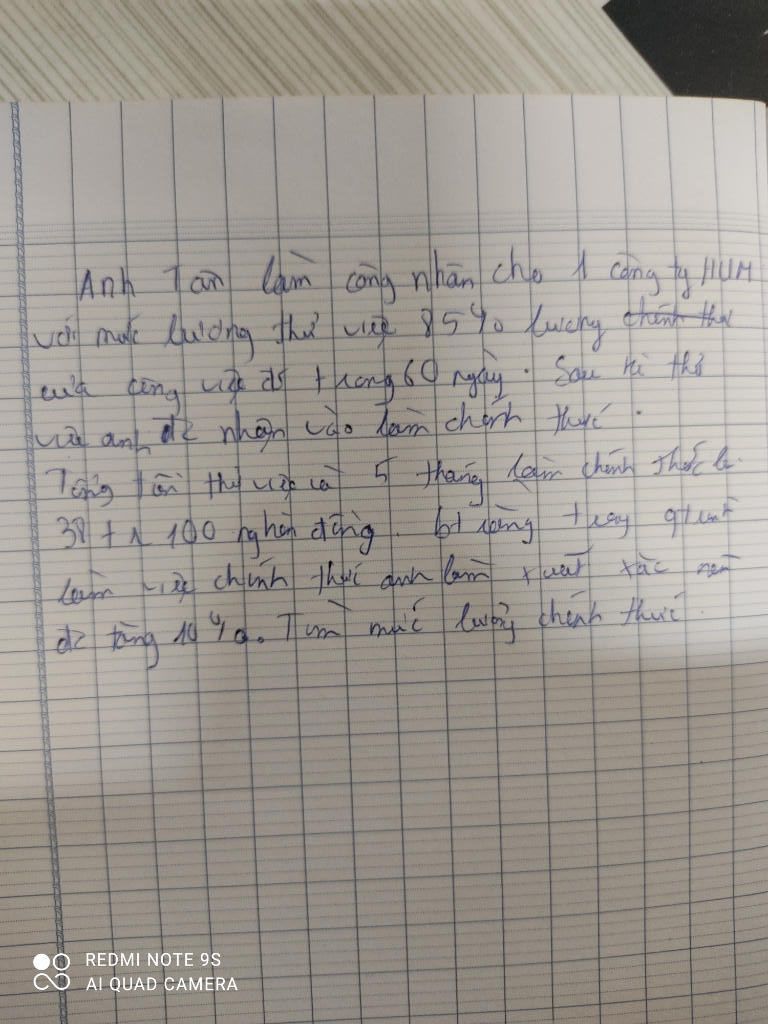 Anh Tân làm công nhân cho 1 công ty HUM
với mức lương thử việc 85% lương chính thứ
của công việc đó trong 60 ngày. Sau kì thử
việc anh đc nhận vào làm chính thức.
Tổng tiền thử việc và 5 tháng làm chính thức là
38 tr 100 nghìn đồng. bt rằng trong
làm việc chính thức anh làm xuất xắc nên
đc tăng 10%. Tìm mức lương chính thức.
REDMI NOTE 9S
AI QUAD CAMERA